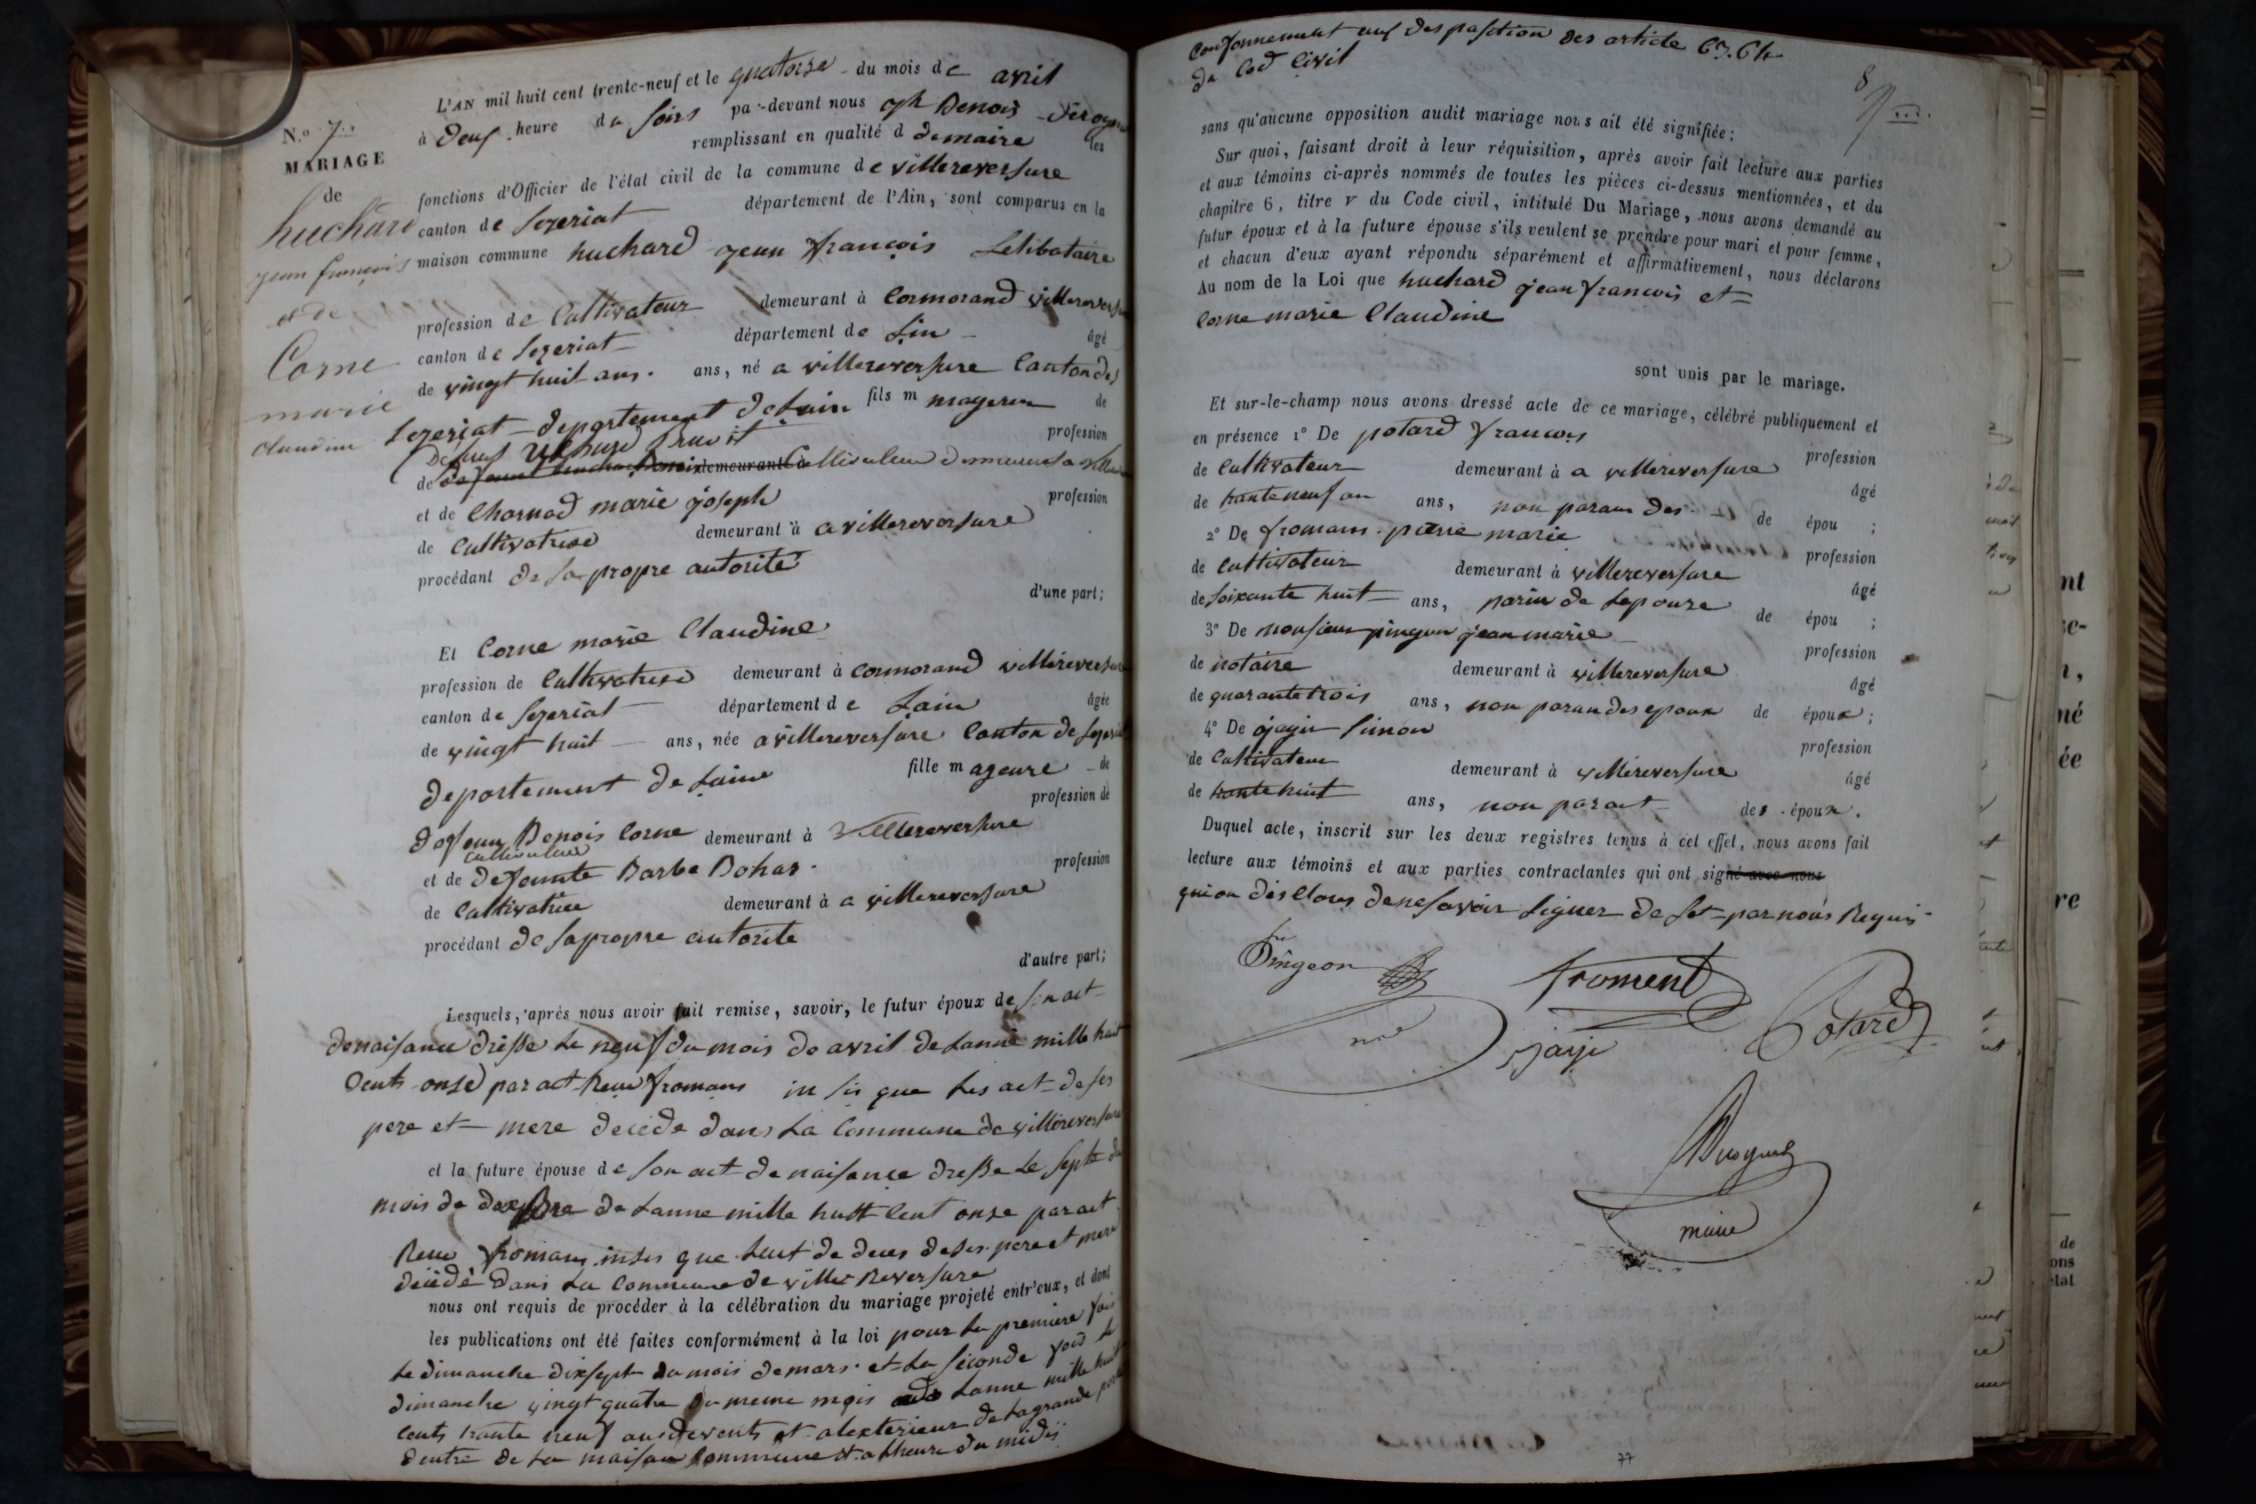 N.o 7.
MARIAGE
de
huchard
jean françois
et de
Corne
marie
claudine
L'AN mil huit cent trente-neuf et le quatorse du mois de avril
à deux heure du soirs par-devant nous Benois
remplissant en qualité d de maire les
fonctions d'Officier de l'état civil de la commune de villereversure
canton de Sezeriat département de l'Ain, sont comparus en la
maison commune huchard jean françois Selibataire
profession de Cultivateur demeurant à Cormorand villereversure
canton de Sezeriat département de Lin âgé
de vingt huit ans. ans, né a villereversure Canton de
Sezeriat departement de Lain fils m mageur de
profession
de demeurant à Cultivateur demeurant a
et de Charnod marie joseph profession
de Cultivatrise demeurant à a villereversure
procédant de sa propre autorité
d'une part;
Et Corne marie Claudine
profession de Cultivatrise demeurant à Cormorand villereversure
canton de Sezeriat département de Lain âgée
de vingt huit ans, née a villereversure Canton de Sezeriat
departement de Laine fille m ageure de
profession de
defeun Benois Corne demeurant à Villereversure
cultivateur
et de defeunte Barbe Bohas profession
de Cultivatrice demeurant à a villereversure
procédant de sa propre autorite
d'autre part;
Lesquels, après nous avoir fait remise, savoir, le futur époux de son act
de naisance dresse le neuf du mois de avril de Lannè mille huit
Cents onse par act Reçu fromans in sis que Les act de ses
pere et mere decede dans La Commune de villereversure
et la future épouse de son act de naisance dresse Le Sept du
mois de de Lanne mille huit Cent onse par act
Recu fromans insis que Lact de deces de ses pere et mere
décédé dans La Commune de ville Reversure
nous ont requis de procéder à la célébration du mariage projeté entr'eux, et dont
les publications ont été faites conformément à la loi pour La premiere fois
Le dimanche dixsept du mois de mars et La seconde fois le
dimanche vingt quatre du meme mois de Lanne mille huit
Cents trante neuf au devents et a lexterieur de La grande porte
dentre de La maison Commune et a Lheure du midi
Conformement aux despasition des article 63. 64
du Cod Civil
8
sans qu'aucune opposition audit mariage nous ait été signifiée:
Sur quoi, faisant droit à leur réquisition, après avoir fait lecture aux parties
et aux témoins ci-après nommés de toutes les pièces ci-dessus mentionnées, et du
chapitre 6, titre v du Code civil, intitulé Du Mariage, nous avons demandé au
futur époux et à la future épouse s'ils veulent se prendre pour mari et pour femme,
et chacun d'eux ayant répondu séparément et affirmativement, nous déclarons
Au nom de la Loi que huchard jean francois et
Corne marie Claudine
sont unis par le mariage.
Et sur-le-champ nous avons dressé acte de ce mariage, célébré publiquement et
en présence 1° De potard francois
profession
de Cultivateur demeurant à a villereversure
âgé
de trante neuf an ans, non paran des de épou ;
2° De fromans pierre marie
profession
de Cultivateur demeurant à villereversure
âgé
de soixante huit ans, parin de Lepouze de épou ;
3° De monsieur pingeon jean marie
profession
de notaire demeurant à villereversure
âgé
de quarante trois ans, non paran des epoux de époux ;
4° De Simon
profession
de Cultivateur demeurant à villereversure
âgé
de trante huit ans, non parant des époux.
Duquel acte, inscrit sur les deux registres tenus à cet effet, nous avons fait
lecture aux témoins et aux parties contractantes qui ont signé avec nous
qui on desclares de ne savoir signer de set par nous Requis
Pingeon
froment
Potard
no
maire
77